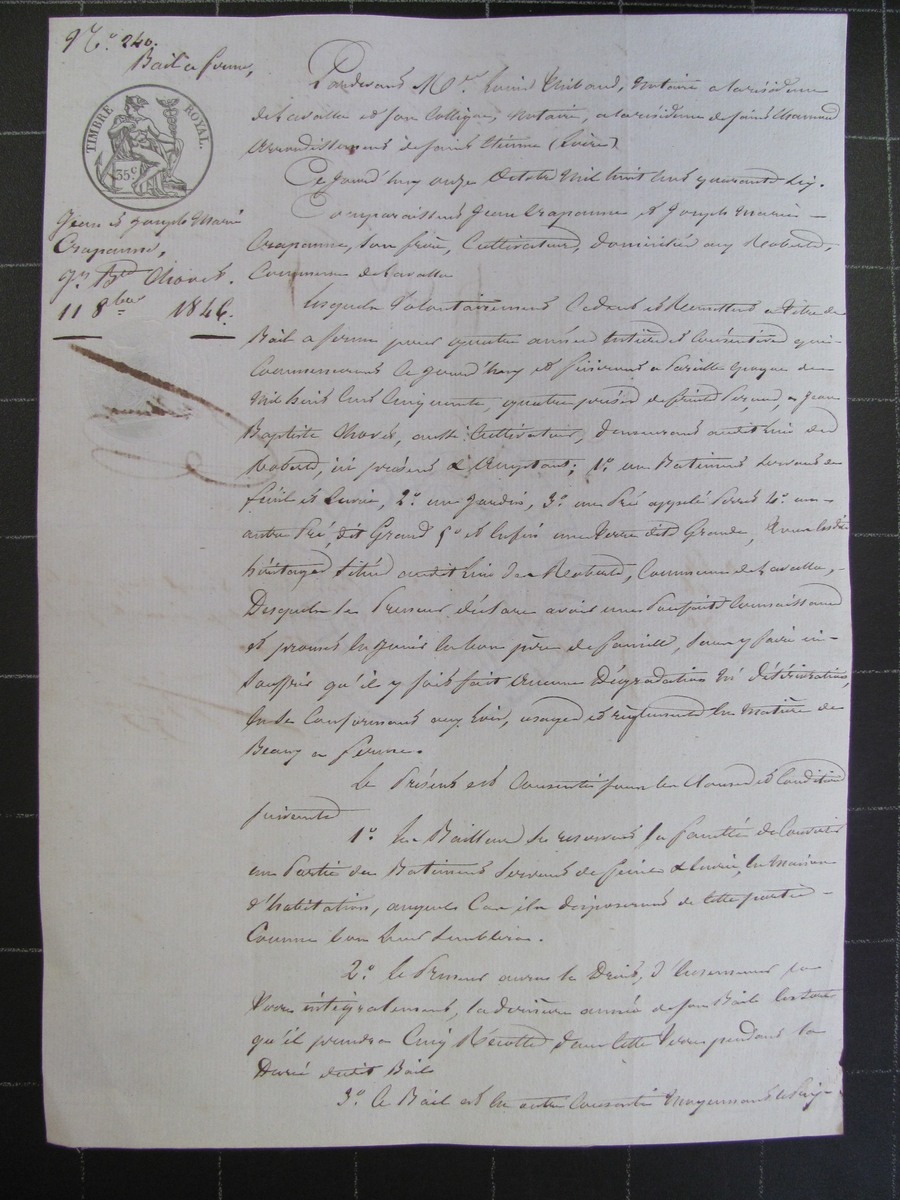 N.º 240.
Bail a ferme,
TIMBRE ROYAL.
35 c
Jean et Joseph Marie
Crapanne,
Jn Bte Chovet.
11 8bre 1846.
Pardevant Me Louis Thibaud, Notaire a la résidence
de Lavalla et son Collègue, Notaire, a la résidence de saint Chamond
arrondissement de saint Etienne (Loire)
Ce jourd'huy onze Octobre mil huit cent quarante six.
Comparaissent Jean Crapanne et Joseph Marie
Crapanne, son frère, Cultivateurs, domiciliés aux Roberts,
Commune de Lavalla
Lesquels Volontairement Cedent et Remettent a titre de
Bail a ferme pour quatre années Entières et Consécutives qui
Commencent Ce jourd'huy et finiront a Pareille époque de
mil huit Cent Cinquante, quatre prises de fruits a Jean
Baptiste Chovet, aussi Cultivateur, demeurant audit lieu des
Roberts, ici présent et acceptant; 1.º un Batiment servant de
fénil et Ecurie, 2.º un jardin, 3.º un Pré appelé 4.º un
autre Pré, dit Grand 5.º et Enfin une Terre dite Grande, tous lesdits
héritages situés audit lieu des Roberts, Commune de Lavalla,
Desquels le Preneur déclare avoir une Parfaite Connaissance
et promet En jouir En bon père de famille, sans y faire ni
souffrir qu'il y soit fait aucune Dégradation ni détérioration,
En se Conformant aux lois, usages et règlements En Matière de
Beaux a ferme.
Le Présent est Consenti sous les Clauses et Conditions
suivantes
1.º Les Bailleurs se reservent la faculté de Convertir
une Partie du Batiment servant de fénil et Ecurie, En Maison
d'habitation, auquel Cas ils disposeront de Cette partie
Comme bon Leur semblera.
2.º Le Preneur aura le Droit, d'Ensemencer la
Terre intégralement, la dernière année de son Bail
qu'il prendra Cinq Récoltes dans Cette Terre pendant la
Durée dudit Bail
3.º Ce Bail est En outre Consenti Moyennant le Prix